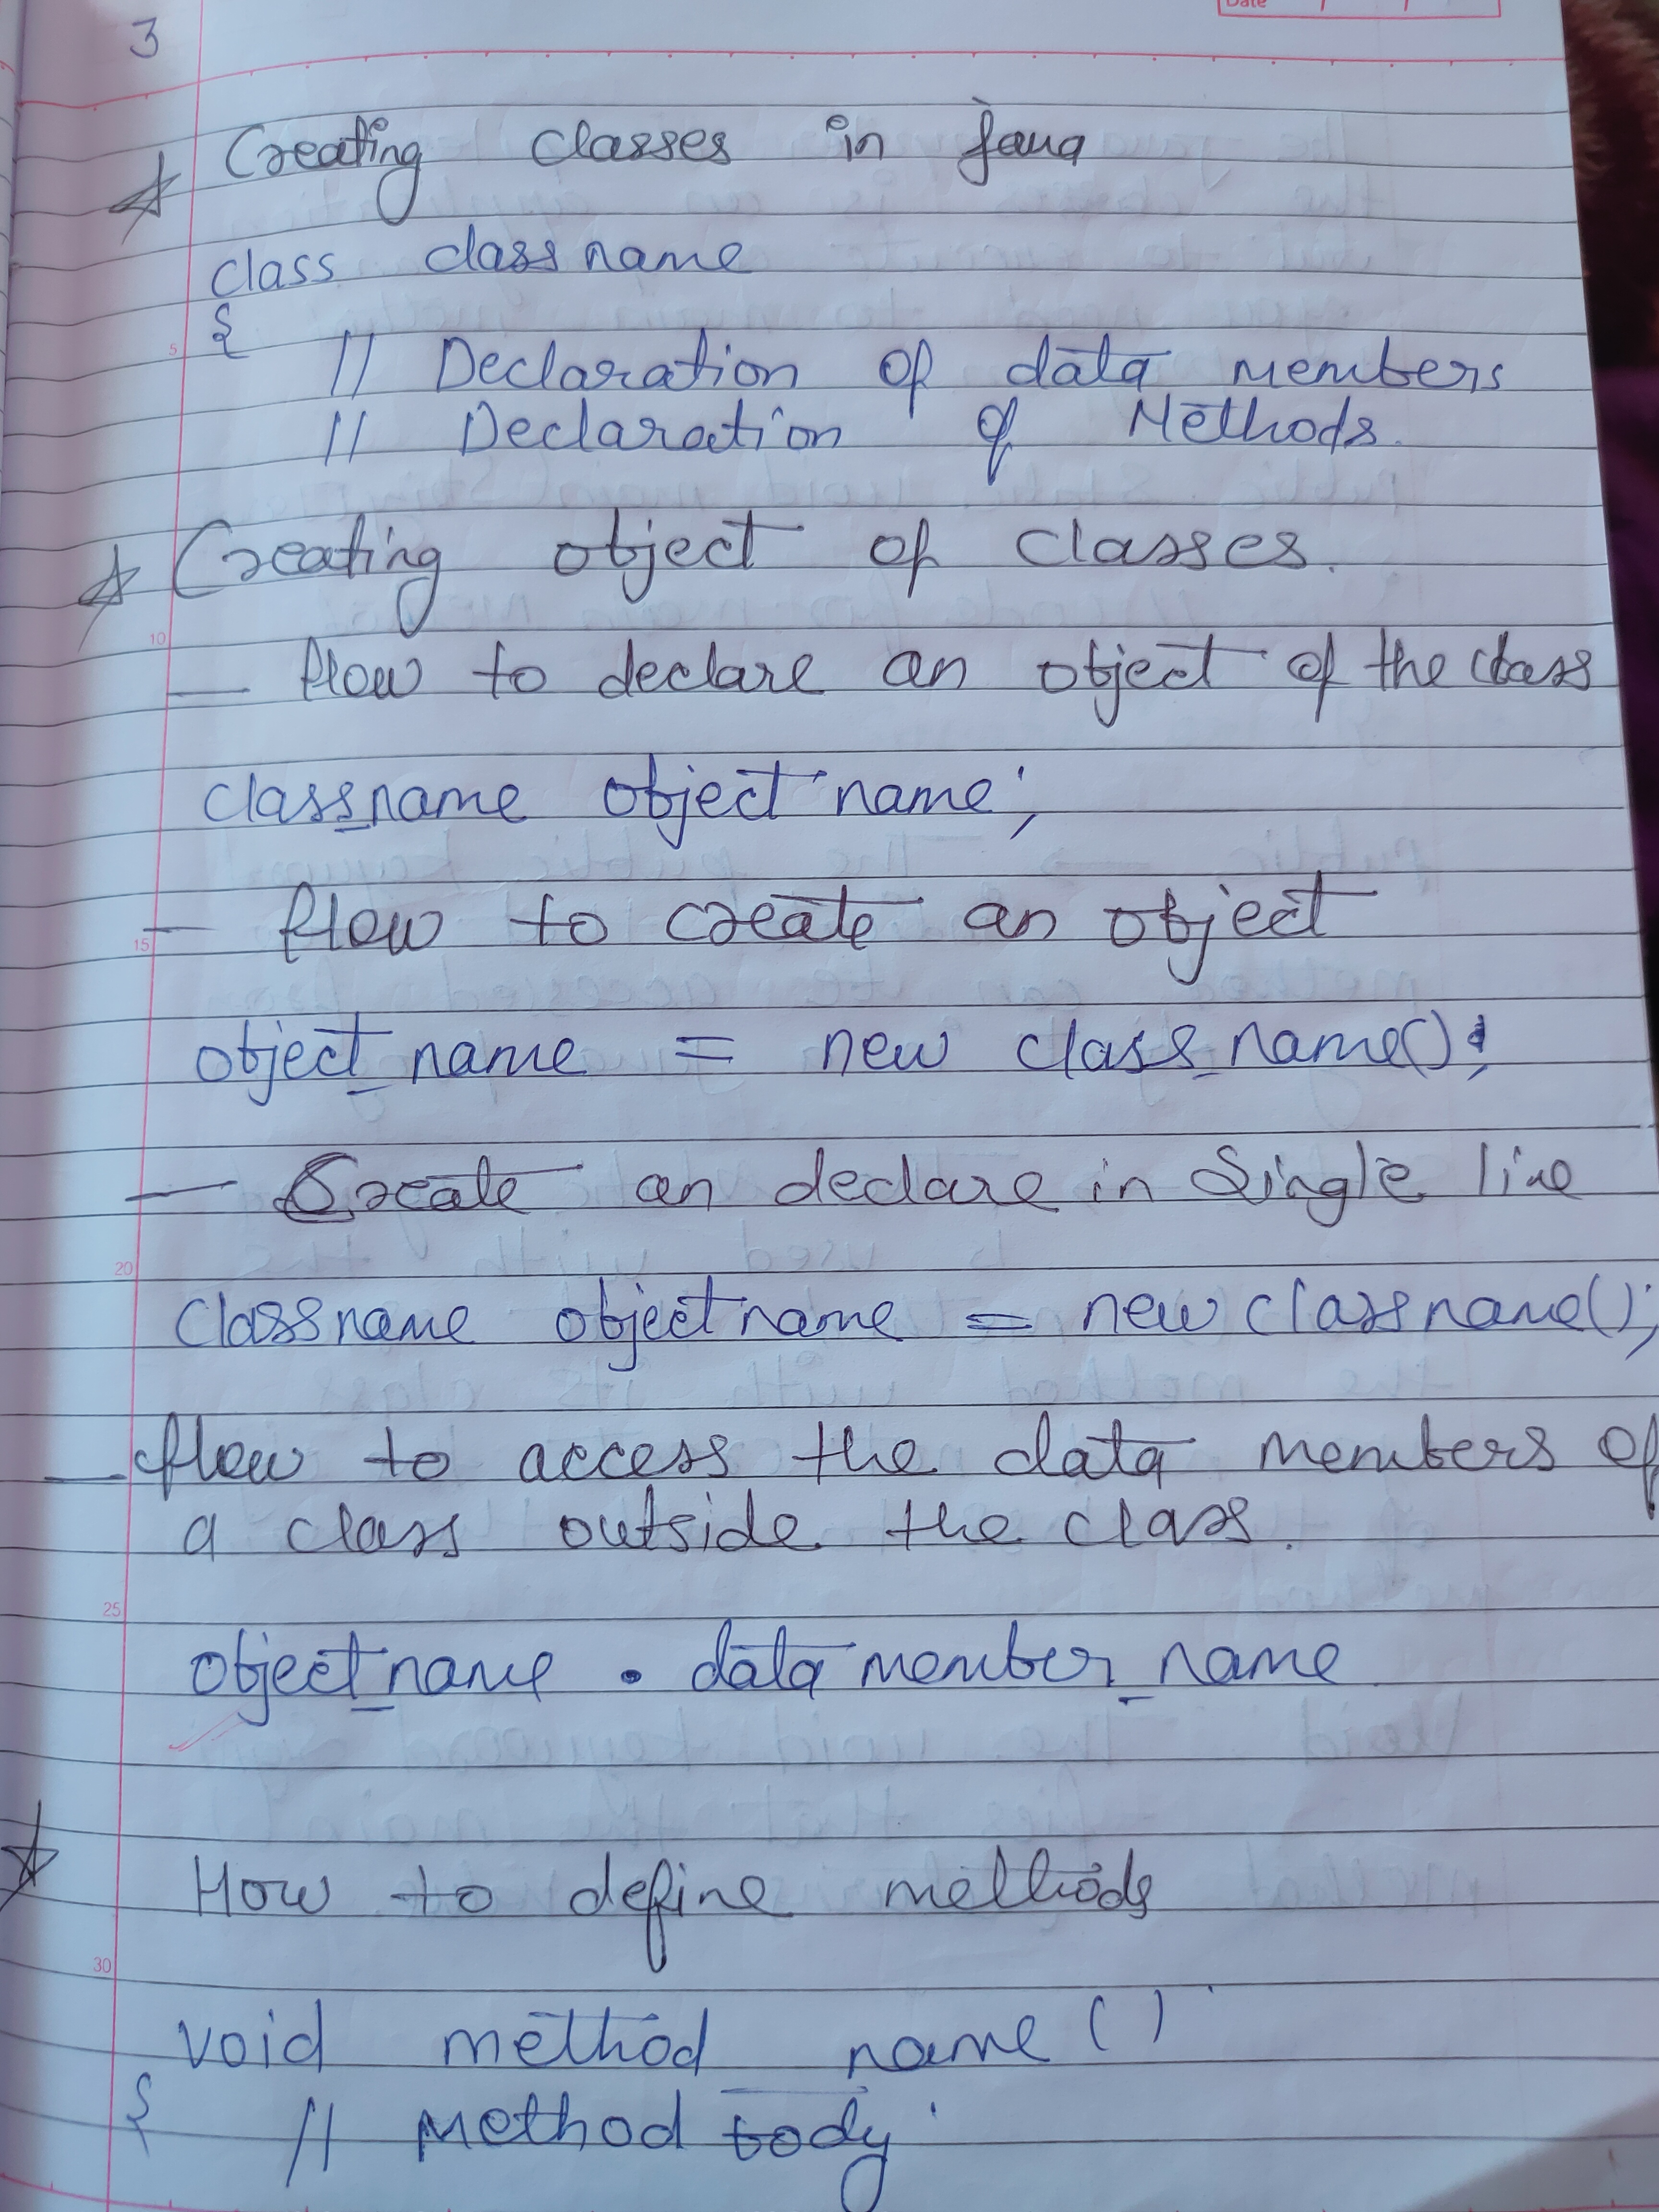 Date
3
Creating classes in Java
class class name
{
5
// Declaration of data members
// Declaration of Methods.
Creating object of classes.
10
— How to declare an object of the class
class_name object name;
— How to create an object
15
object_name = new class_name();
— Create an declare in Single line
20
Classname objectname = new classname();
— How to access the data members of
a class outside the class.
25
object_name . data member_name
How to define methods
30
void method_name()
{ // Method body